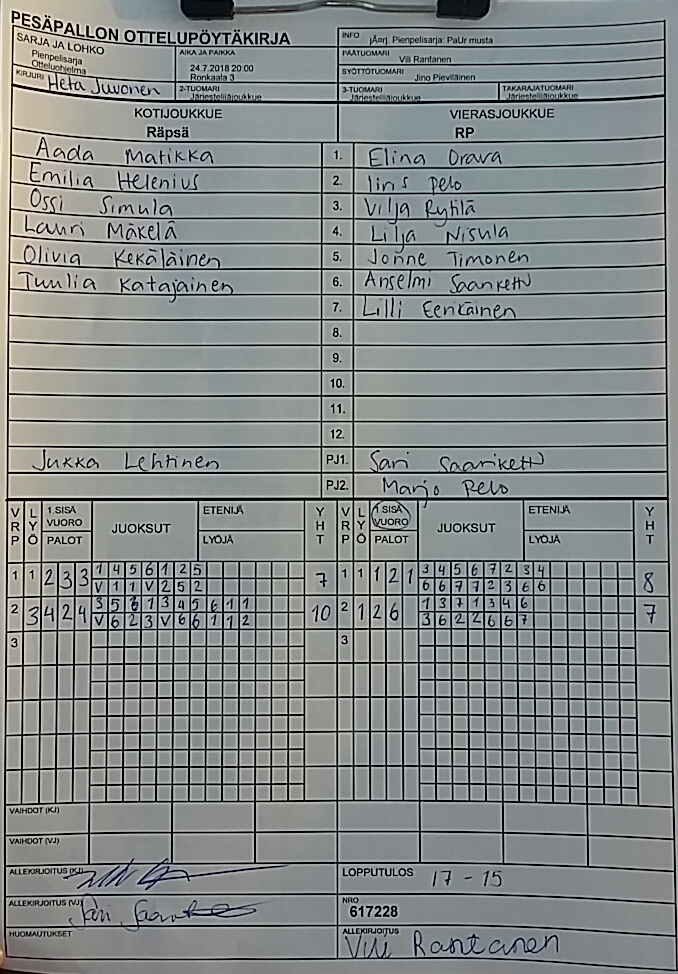 PESÄPALLON OTTELUPÖYTÄKIRJA
INFO jÄ¤rj. Pienpelisarja: PaUr musta
SARJA JA LOHKO
Pienpelisarja
Otteluohjelma
AIKA JA PAIKKA
24.7.2018 20:00
Ronkaala 3
PÄÄTUOMARI Vili Rantanen
SYÖTTÖTUOMARI Jino Pieviläinen
KIRJURI Heta Juvonen
2-TUOMARI Järjestelijäjoukkue
3-TUOMARI Järjestelijäjoukkue
TAKARAJATUOMARI Järjestelijäjoukkue
KOTIJOUKKUE VIERASJOUKKUE
Räpsä RP
Aada Matikka 1. Elina Orava
Emilia Helenius 2. Iiris Pelo
Ossi Simula 3. Vilja Rytilä
Lauri Mäkelä 4. Lilja Nisula
Olivia Kekäläinen 5. Jonne Timonen
Tuulia Katajainen 6. Anselmi Saariketto
7. Lilli Eerikäinen
8.
9.
10.
11.
12.
Jukka Lehtinen PJ1. Sari Saariketto
PJ2. Marjo Pelo
VRP LYÖ 1.SISÄ VUORO PALOT JUOKSUT ETENIJÄ LYÖJÄ YHT VRP LYÖ 1.SISÄ VUORO PALOT JUOKSUT ETENIJÄ LYÖJÄ YHT
1 1 2 3 3 1 4 5 6 1 2 5 7 1 1 1 2 1 3 4 5 6 7 2 3 4 8
V 1 1 V 2 5 2 6 6 7 7 2 3 6 6
2 3 4 2 4 3 5 6 1 3 4 5 6 1 1 10 2 1 2 6 1 3 7 1 3 4 6 7
V 6 2 3 V 6 6 1 1 2 3 6 2 2 6 6 7
3 3
VAIHDOT (KJ)
VAIHDOT (VJ)
ALLEKIRJOITUS (KJ) LOPPUTULOS 17 - 15
ALLEKIRJOITUS (VJ) Sari Saariketto NRO
617228
HUOMAUTUKSET ALLEKIRJOITUS Vili Rantanen